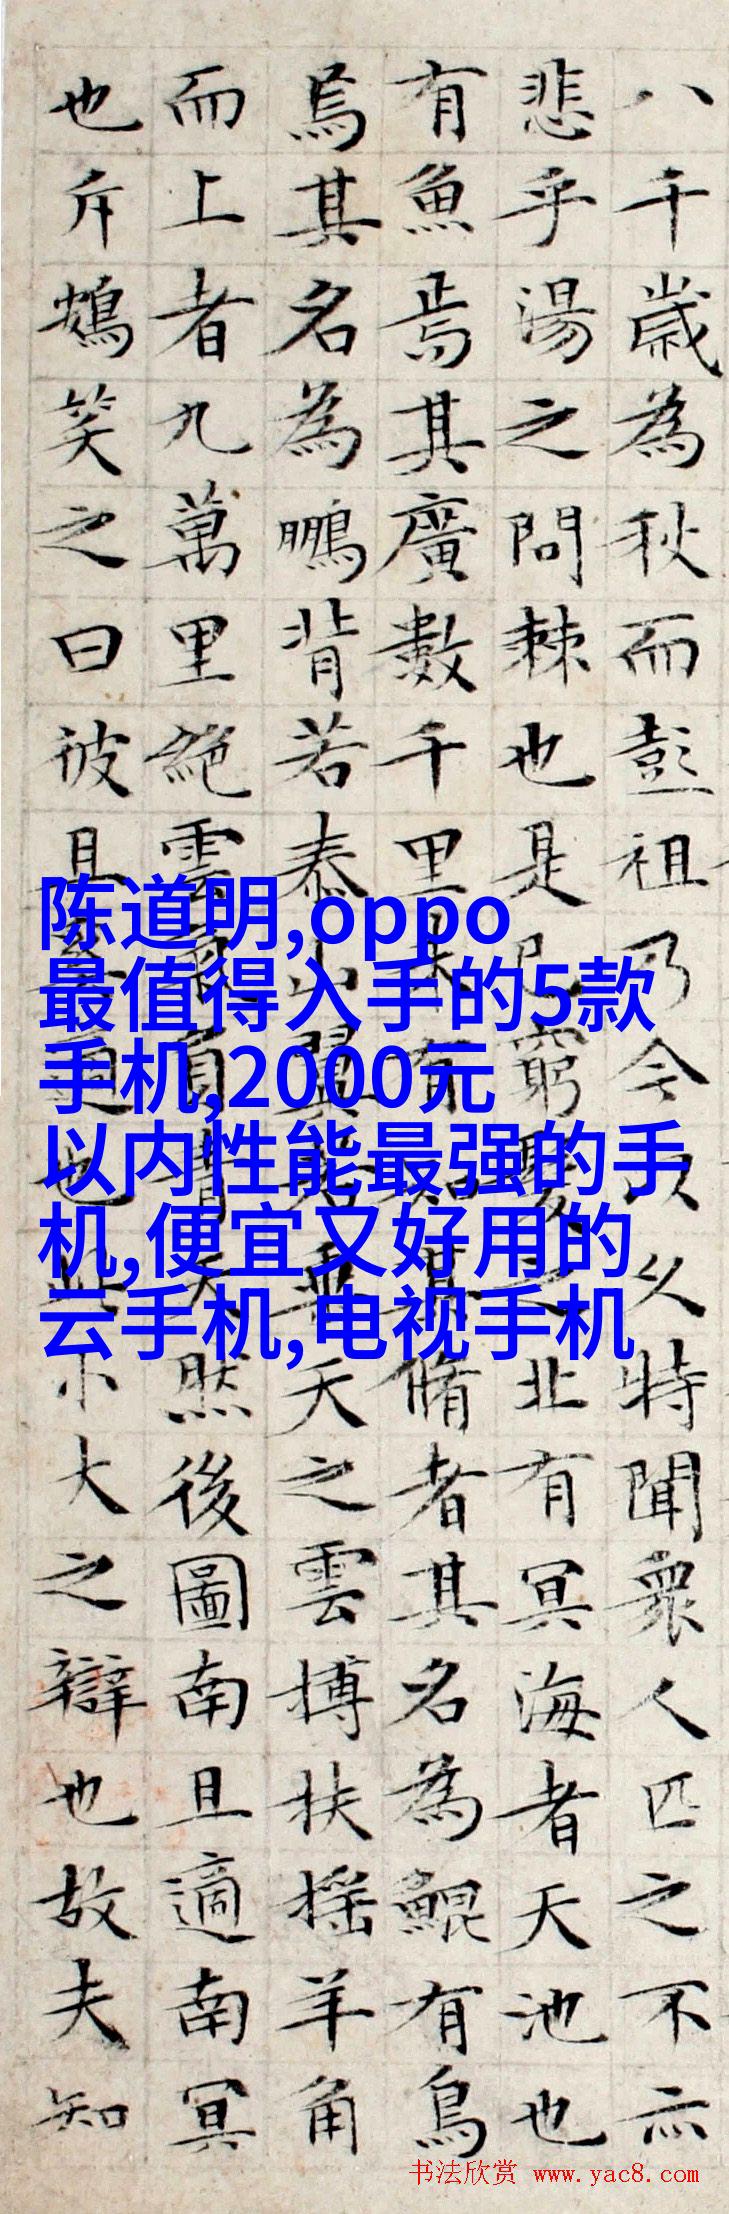 八千歲為秋而彭祖乃今以久特聞衆人匹之不亦
悲乎湯之問棘也是已窮髮之北有冥海者天池也
有魚焉其廣數千里未有知其脩者其名為鯤有鳥
焉其名為鵬背若泰山翼若垂天之雲搏扶搖羊角
而上者九萬里絕雲氣負青天然後圖南且適南冥
也斥鴳笑之曰彼且奚適也此小大之辯也故夫知
陈道明,oppo
最值得入手的5款
手机,2000元
以内性能最强的手
机,便宜又好用的
云手机,电视手机
书法欣赏 www.yac8.com